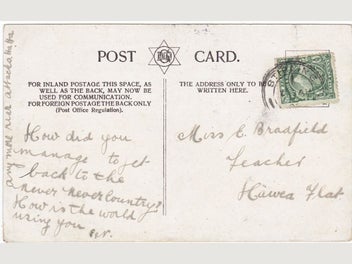 POST CARD.
FOR INLAND POSTAGE THIS SPACE, AS
WELL AS THE BACK, MAY NOW BE
USED FOR COMMUNICATION.
FOR FOREIGN POSTAGE THE BACK ONLY
(Post Office Regulation).
THE ADDRESS ONLY TO BE
WRITTEN HERE.
How did you
manage to get
back to the
never never country?
How is the world
using you
any more
Miss E Bradfield
Teacher
Flat